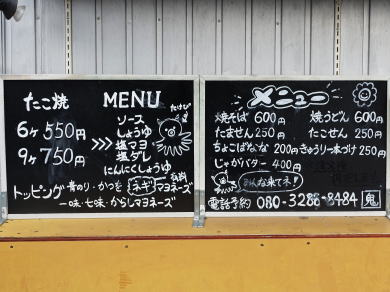 たこ焼 MENU
たけぴ
6ヶ 550円
9ヶ 750円
>>>
ソース
しょうゆ
塩マヨ
塩ダレ
にんにくしょうゆ
トッピング 青のり・かつを ネギ マヨネーズ
一味・七味・からしマヨネーズ
メニュー
焼そば 600円 焼うどん 500円
たません 250円 たこせん 250円
ちょこばなな 200円 きゅうり一本づけ 250円
じゃがバター 400円
みんな来てネ!
電話予約 080-3286-8484 鬼